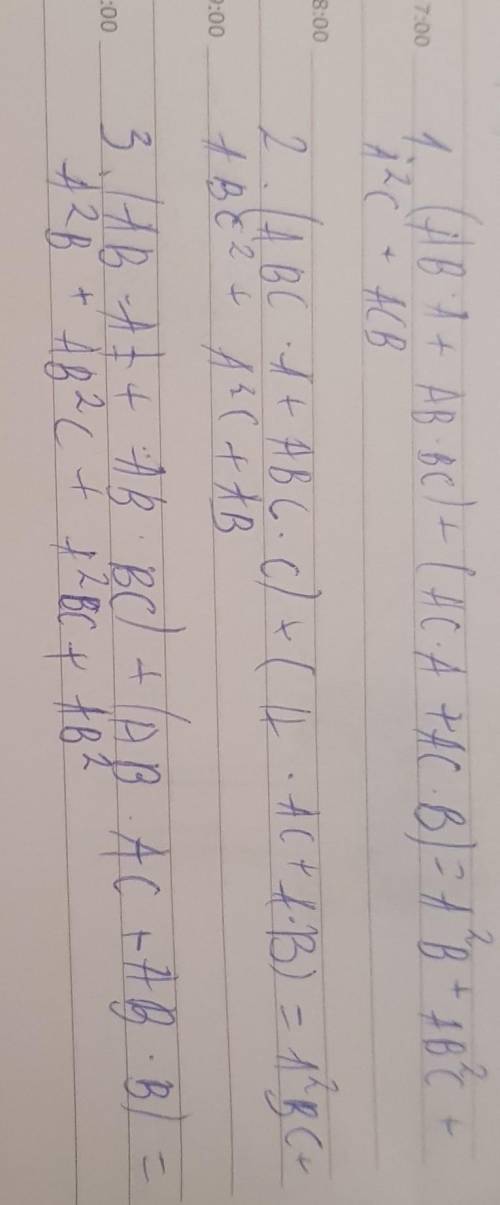 7:00
1. (AB·A + AB·BC) + (AC·A + AC·B) = A²B + AB²C +
A²C + ACB
8:00
2. (ABC·A + ABC·C) + (A·AC + A·B) = A²BC +
ABC² + A²C + AB
9:00
3. (AB·A + AB·BC) + (AB·AC + AB·B) =
:00
A²B + AB²C + A²BC + AB²